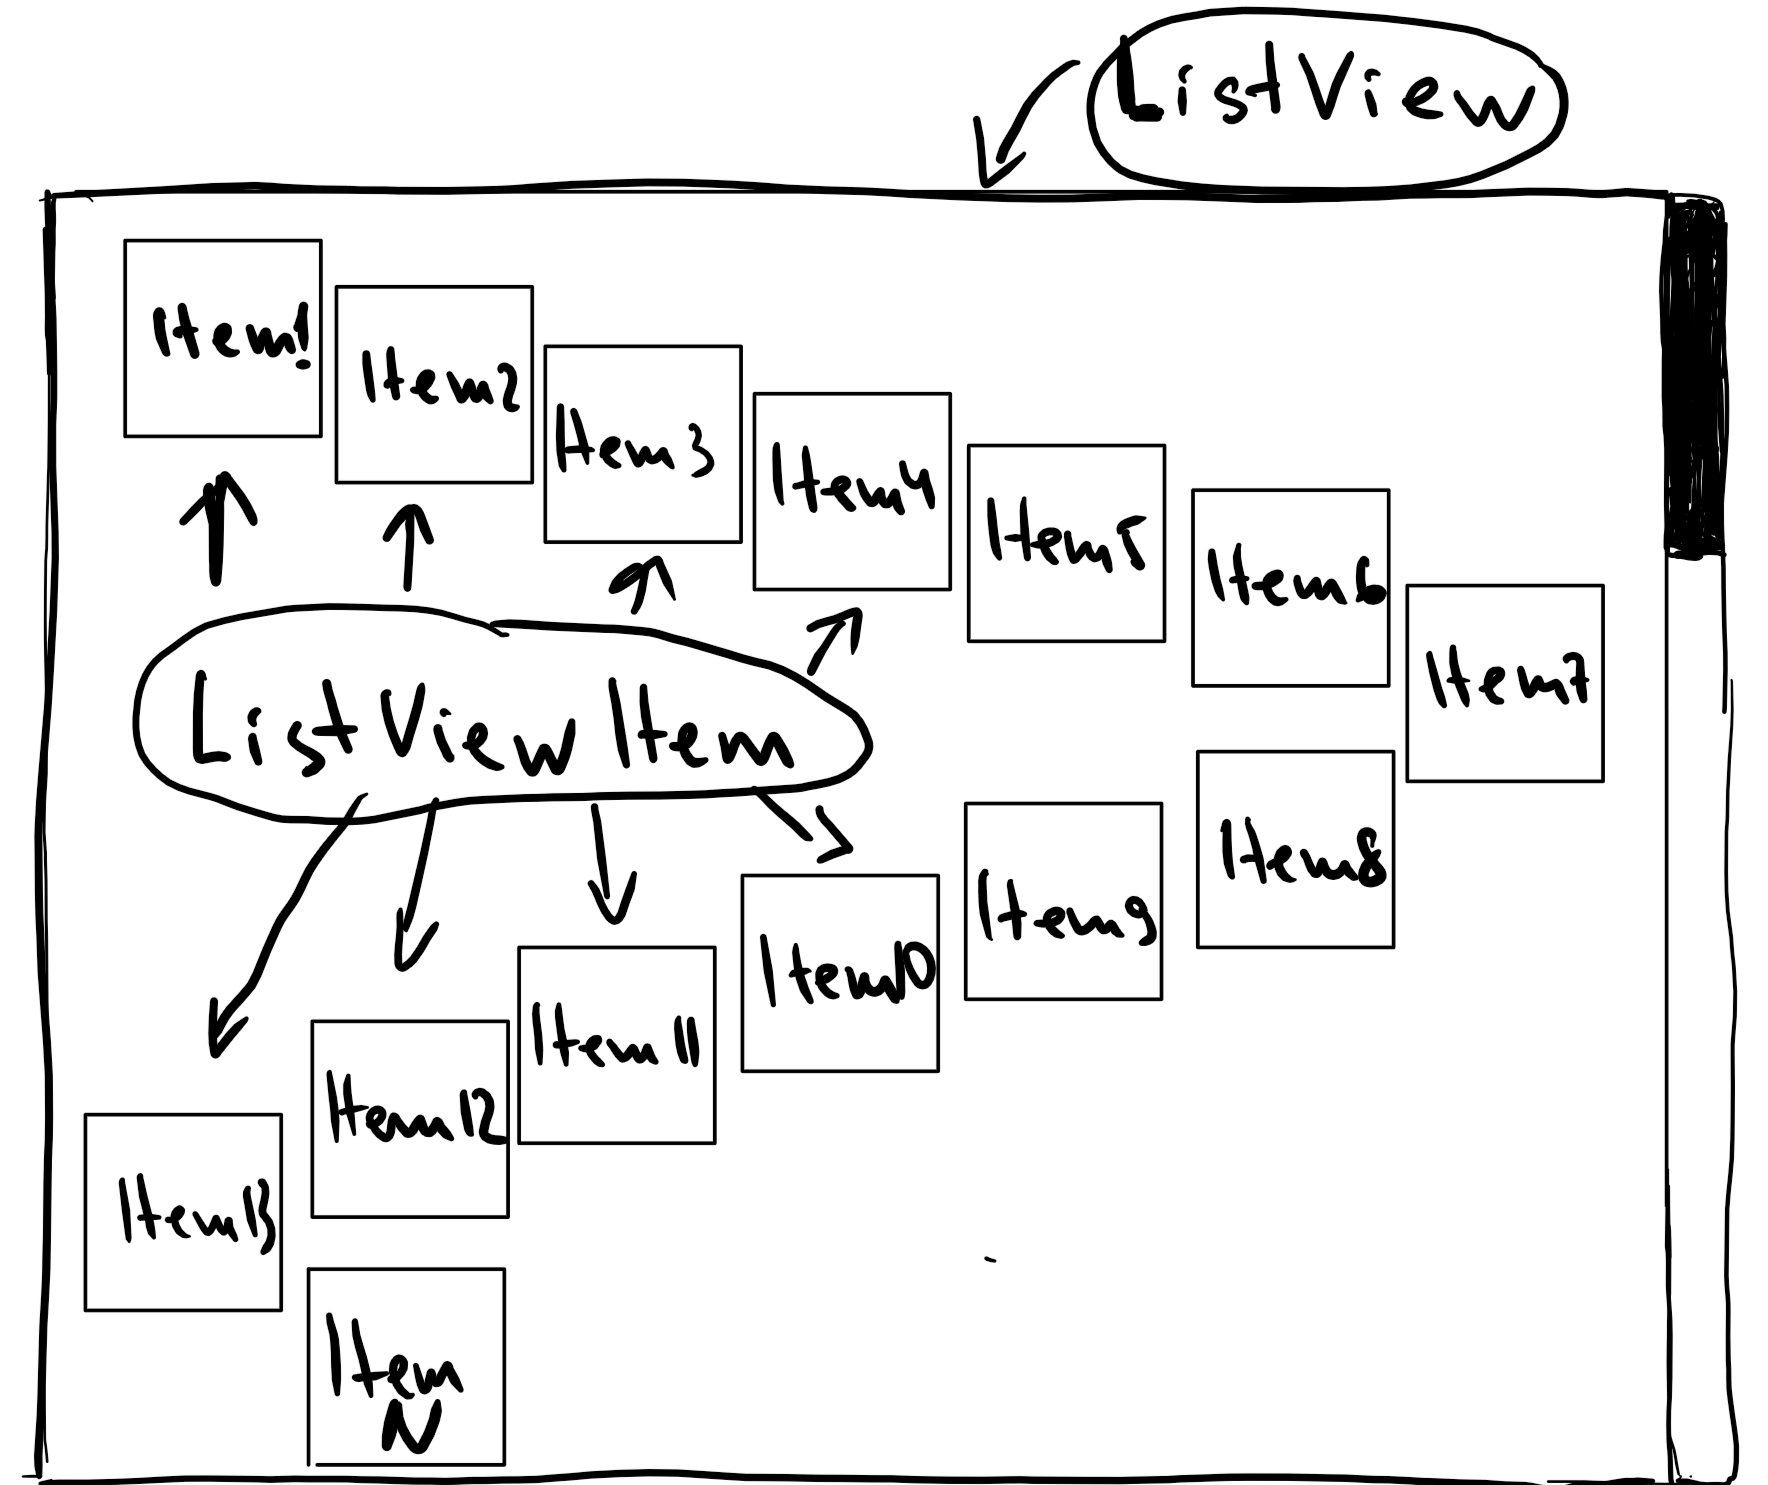 ListView
Item1
Item2
Item3
Item4
Item5
Item6
Item7
ListView Item
Item8
Item9
Item10
Item11
Item12
Item13
Item
N